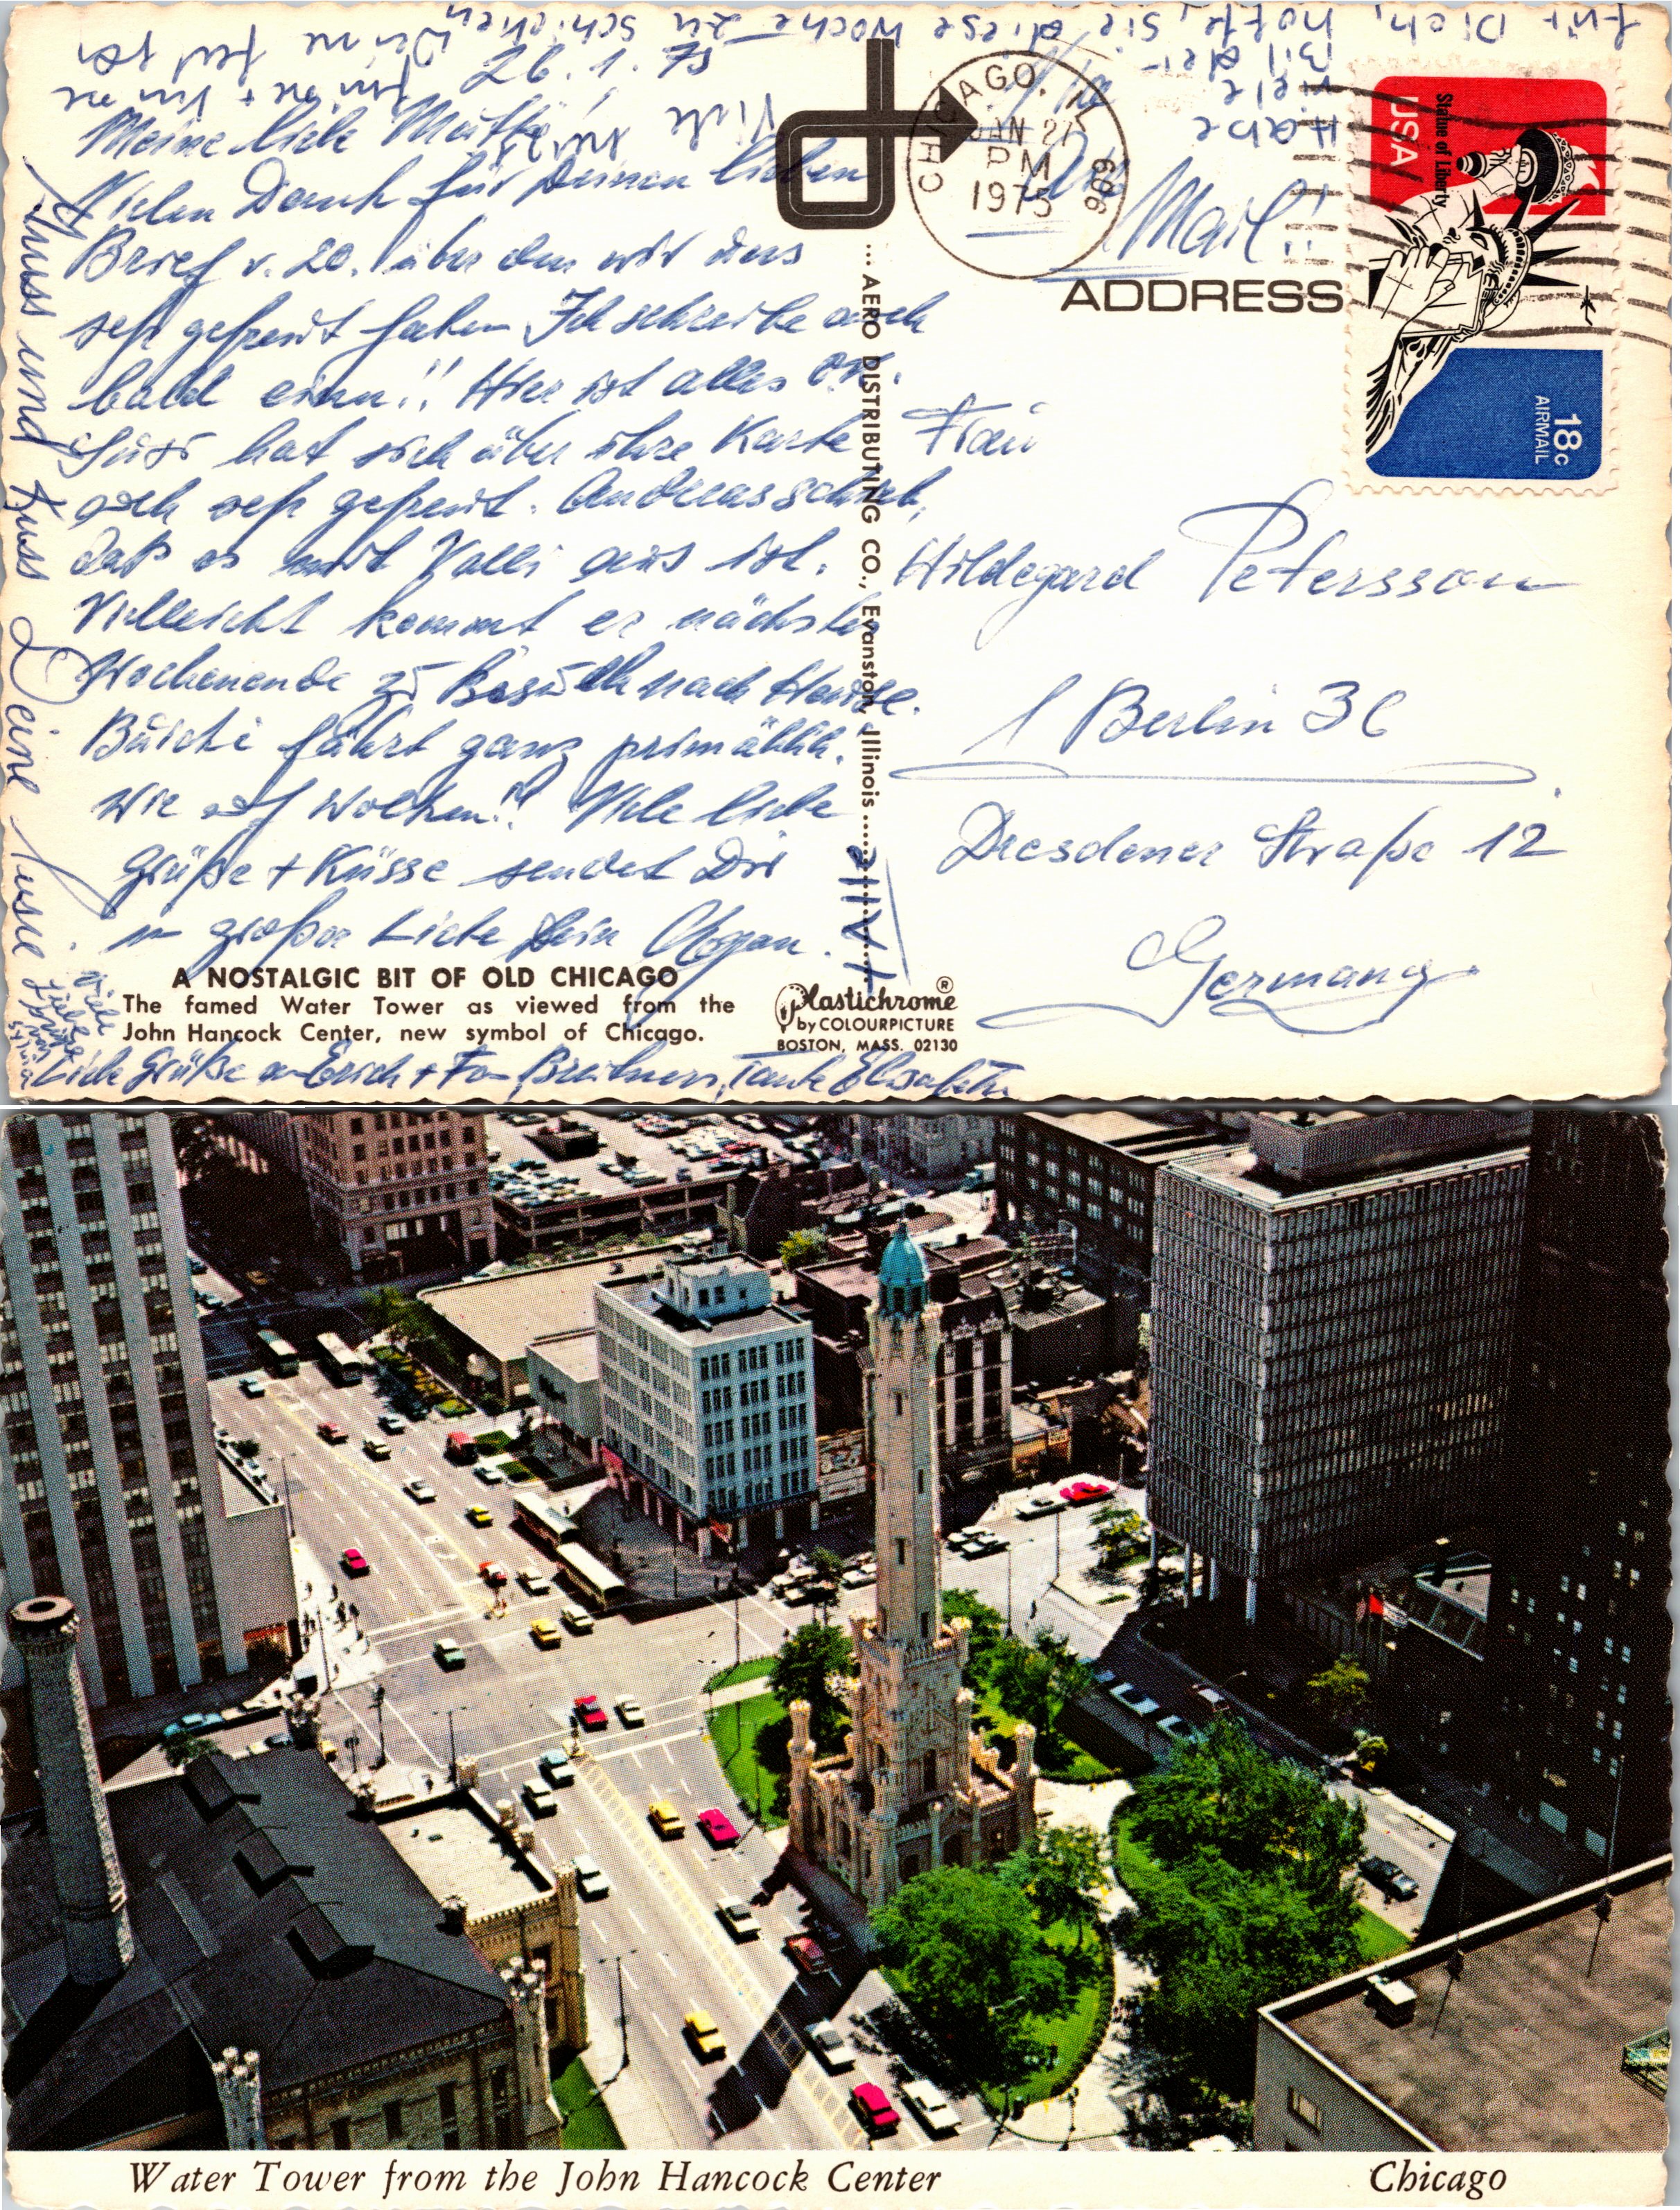 26. 1. 75
Meine liebe Mutti,
Vielen Dank für Deinen lieben
Brief v. 20. über den wir uns
sehr gefreut haben Ich schreibe auch
bald einen!! Hier ist alles OK.
hat sich über ihre Karte
sehr gefreut. Andreas schrieb,
daß es mit Valli aus ist.
Vielleicht kommt er nächstes
Wochenende zu Besuch nach Hause.
fährt ganz
Wie auf Wolken!! Viele liebe
Grüße + Küsse sendet Dir
in großer Liebe Dein
Gruss und Kuss Deine Susie
Viele
liebe
Grüße
von
Liebe Grüße an Erich + Breitners, Tante Elisabeth
Habe
viele
Bilder
für Dich, hoffe, sie diese Woche zu schicken, Deine
Viele
A NOSTALGIC BIT OF OLD CHICAGO
The famed Water Tower as viewed from the
John Hancock Center, new symbol of Chicago.
Plastichrome ®
by COLOURPICTURE
BOSTON, MASS. 02130
... AERO DISTRIBUTING CO., Evanston, Illinois ...
CHICAGO, IL 606
JAN 27
PM
1975
Via
Air
Mail!
ADDRESS
USA
Statue of Liberty
18c
AIRMAIL
Frau
Hildegard Petersson
1 Berlin 36
Dresdener Straße 12
Germany
Water Tower from the John Hancock Center
Chicago